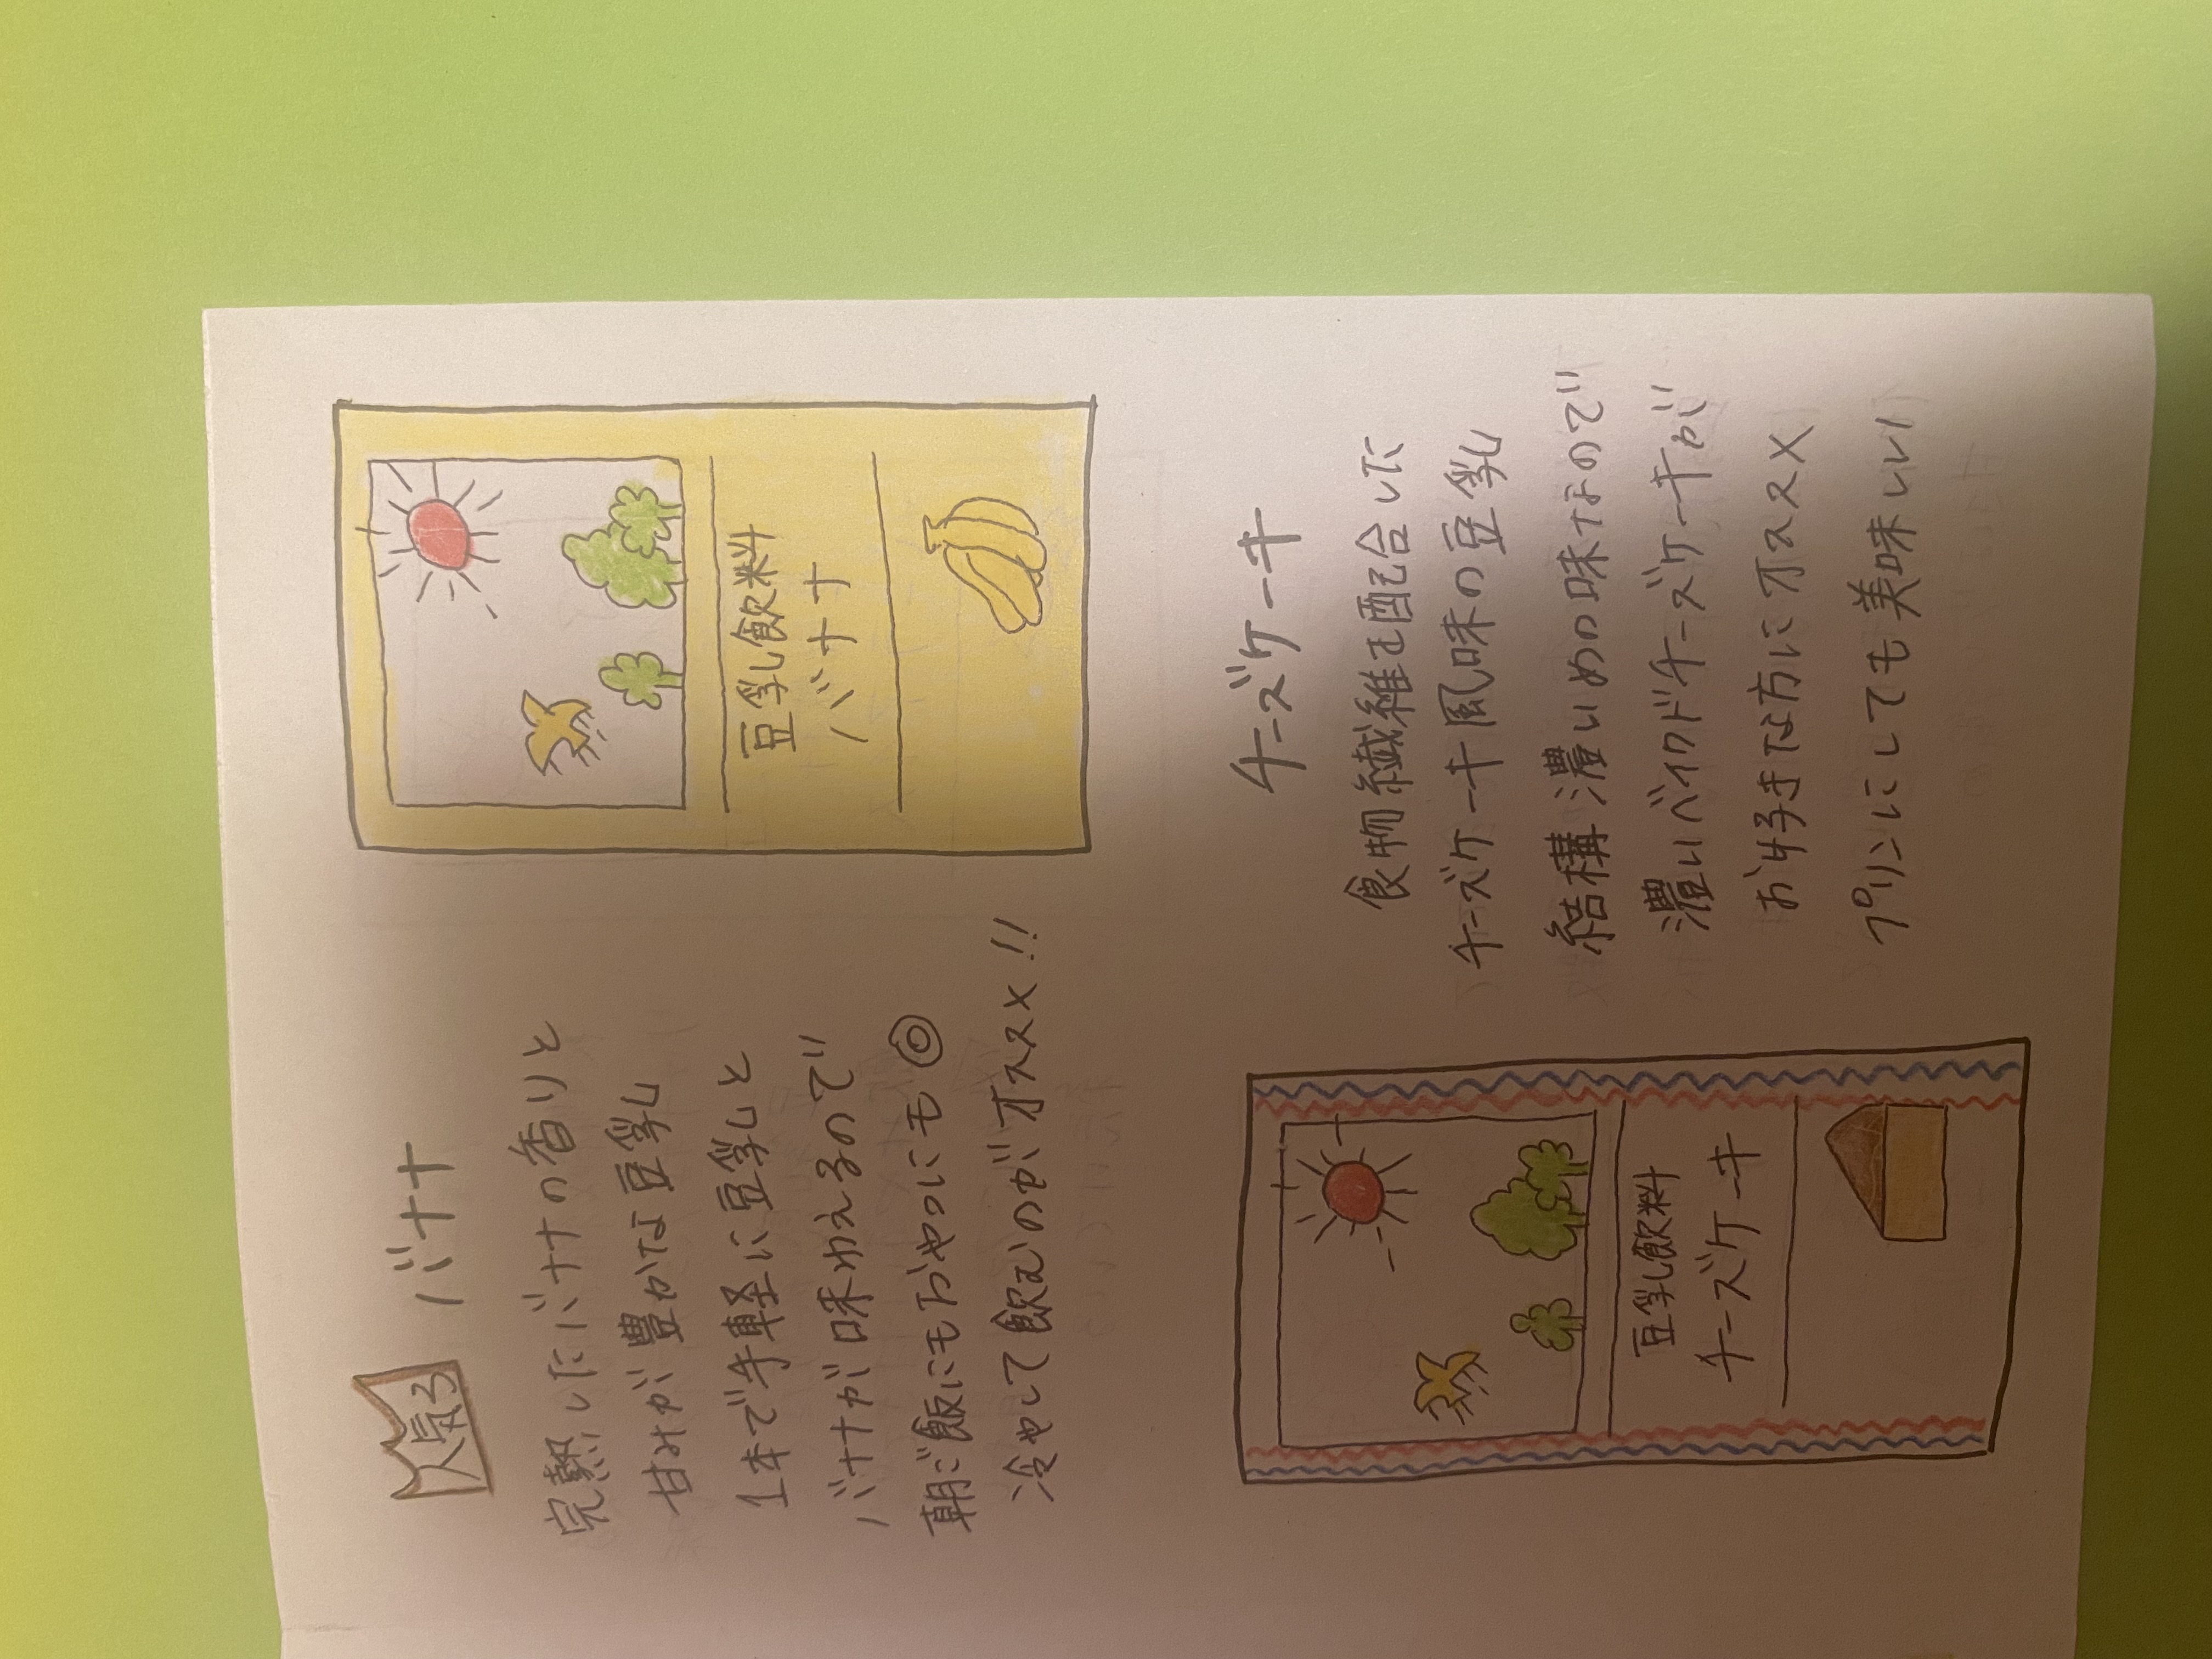 人気3 バナナ
完熟したバナナの香りと
甘みが豊かな豆乳
1本で手軽に豆乳と
バナナが味わえるので
朝ご飯にもおやつにも◎
冷やして飲むのがオススメ!!
豆乳飲料
バナナ
チーズケーキ
食物繊維を配合した
チーズケーキ風味の豆乳
結構濃いめの味なので
濃いベイクドチーズケーキが
お好きな方にオススメ
プリンにしても美味しい
豆乳飲料
チーズケーキ